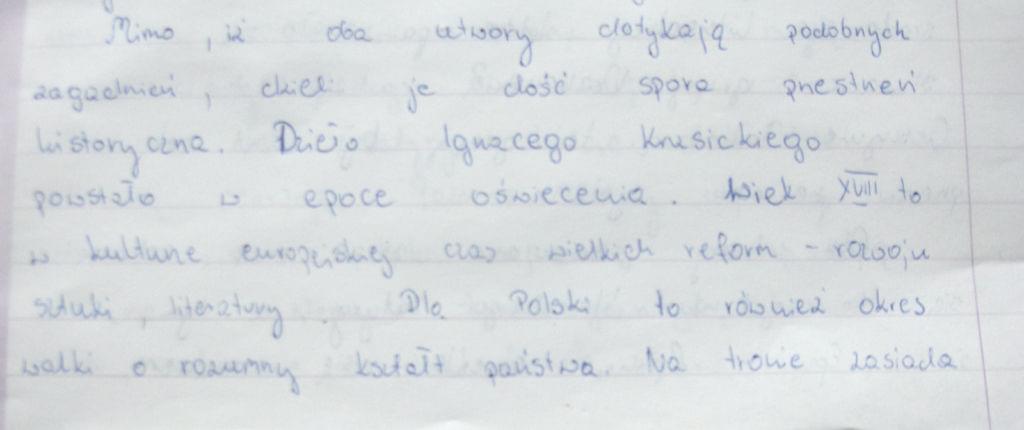 Mimo, iż oba utwory dotykają podobnych
zagadnień, dzieli je dość spora przestrzeń
historyczna. Dzieło Ignacego Krasickiego
powstało w epoce oświecenia. Wiek XVIII to
w kulturze europejskiej czas wielkich reform - rozwoju
sztuki, literatury. Dla Polski to również okres
walki o rozumny kształt państwa. Na tronie zasiada